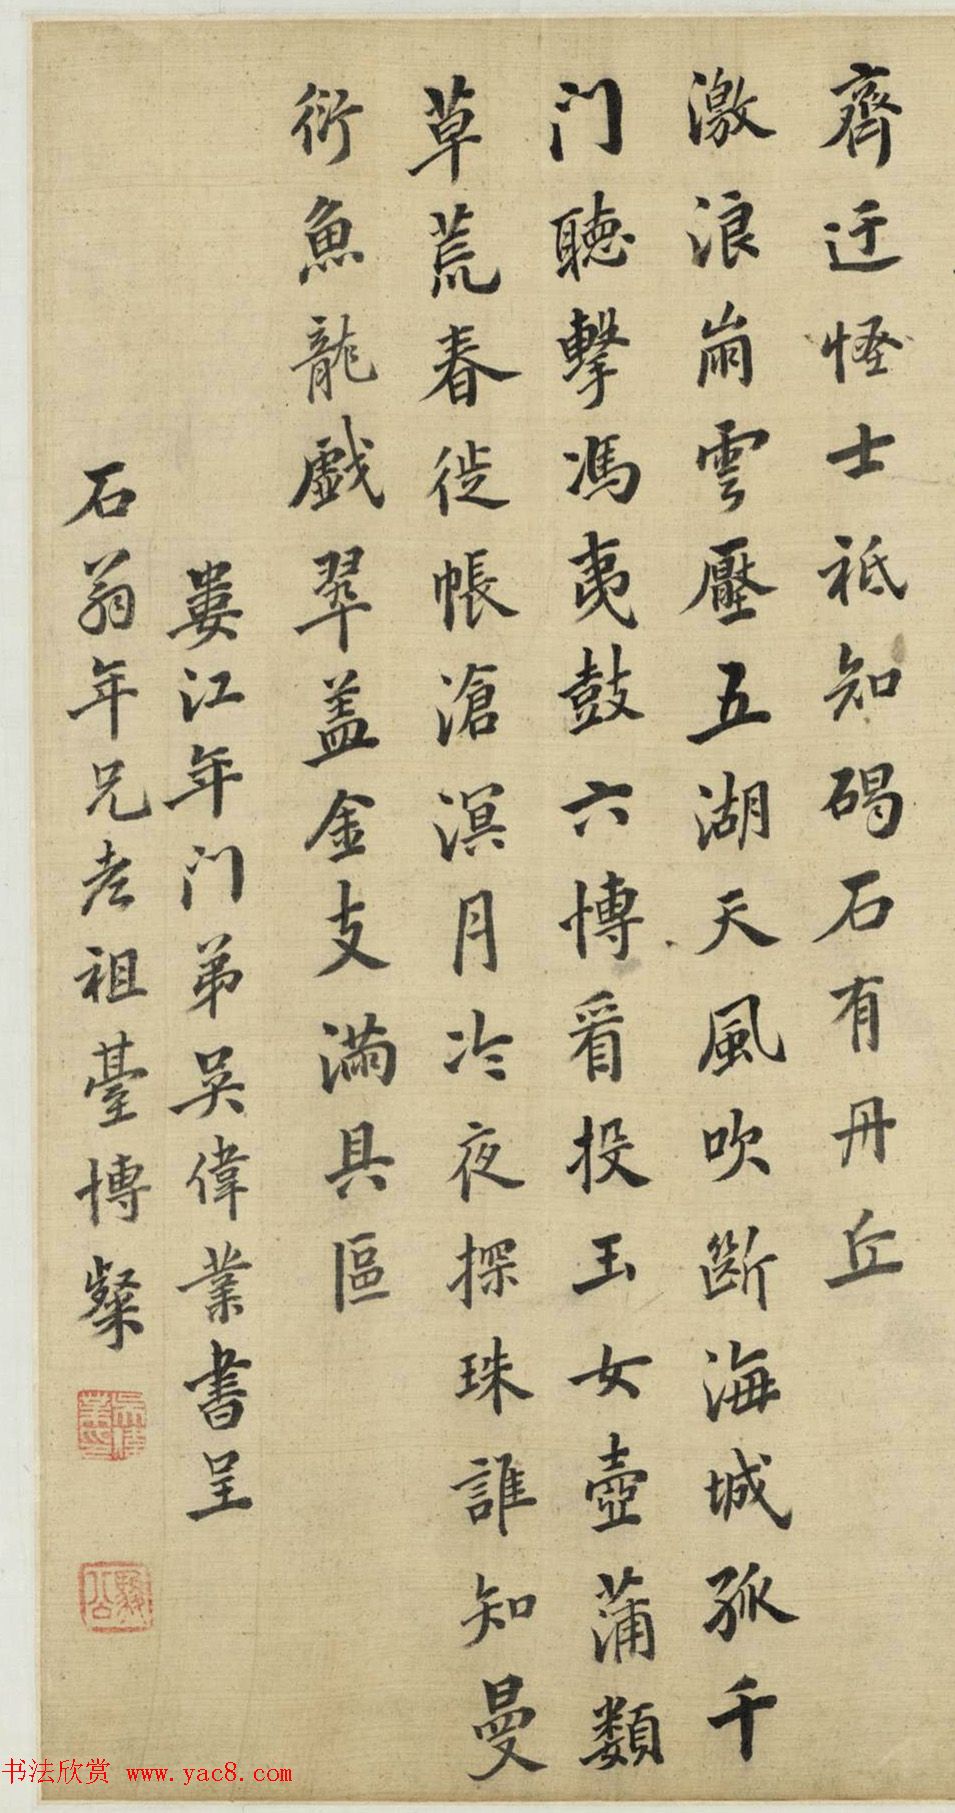 齊迂怪士祗知碣石有丹丘
激浪崩雲壓五湖天風吹斷海城孤千
门聽擊馮夷鼓六博看投玉女壺蒲類
草荒春徙帳滄溟月冷夜探珠誰知曼
衍魚龍戲翠盖金支滿具區
婁江年门弟吴偉業書呈
石翁年兄老祖臺博粲
吴偉業印
駿公
书法欣赏 www.yac8.com